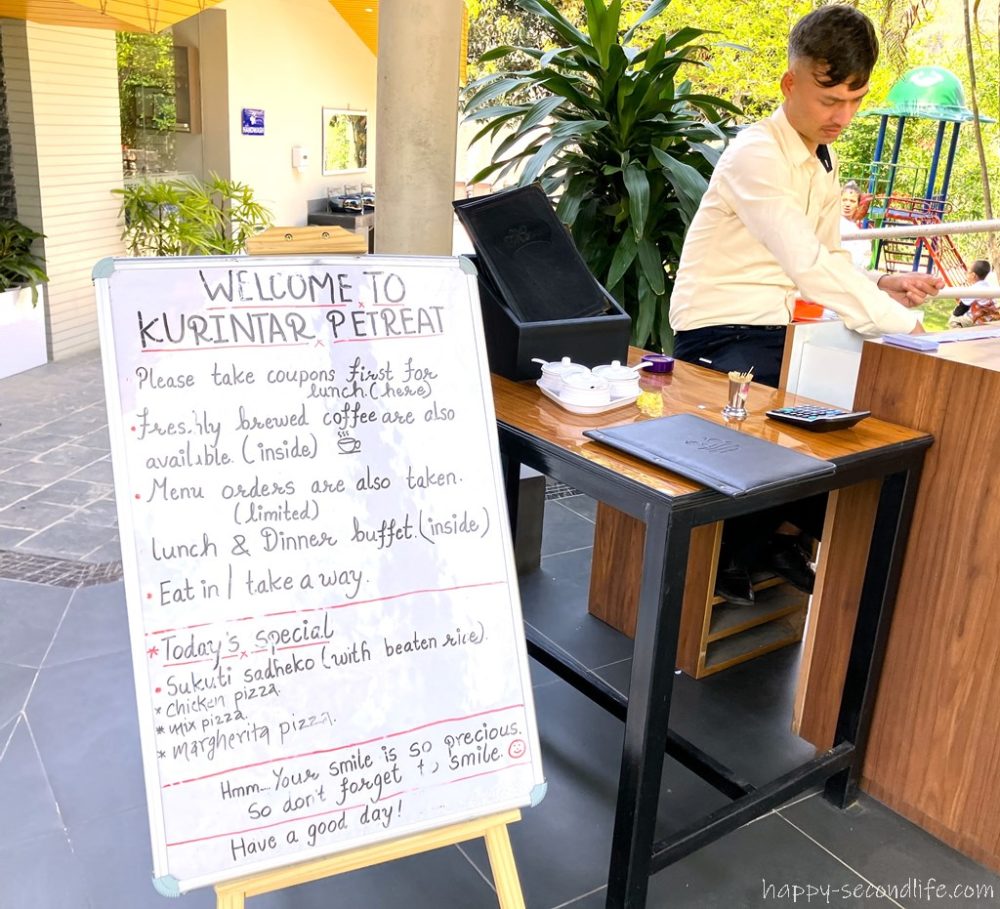 HANDWASH
WELCOME TO
KURINTAR PETREAT
Please take coupons first for
lunch (here)
• Freshly brewed coffee are also
available. (inside)
• Menu orders are also taken.
(limited)
lunch & Dinner buffet. (inside)
• Eat in / take a way.
* Today's special
• Sukuti sadheko (with beaten rice).
* chicken pizza.
* mix pizza.
* margherita pizza.
Hmm... Your smile is so precious.
So don't forget to smile.
Have a good day!
happy-secondlife.com